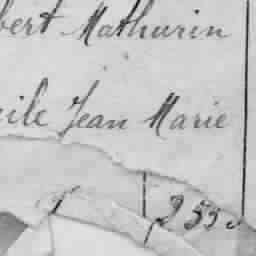 bert Mathurin
cile Jean Marie
255